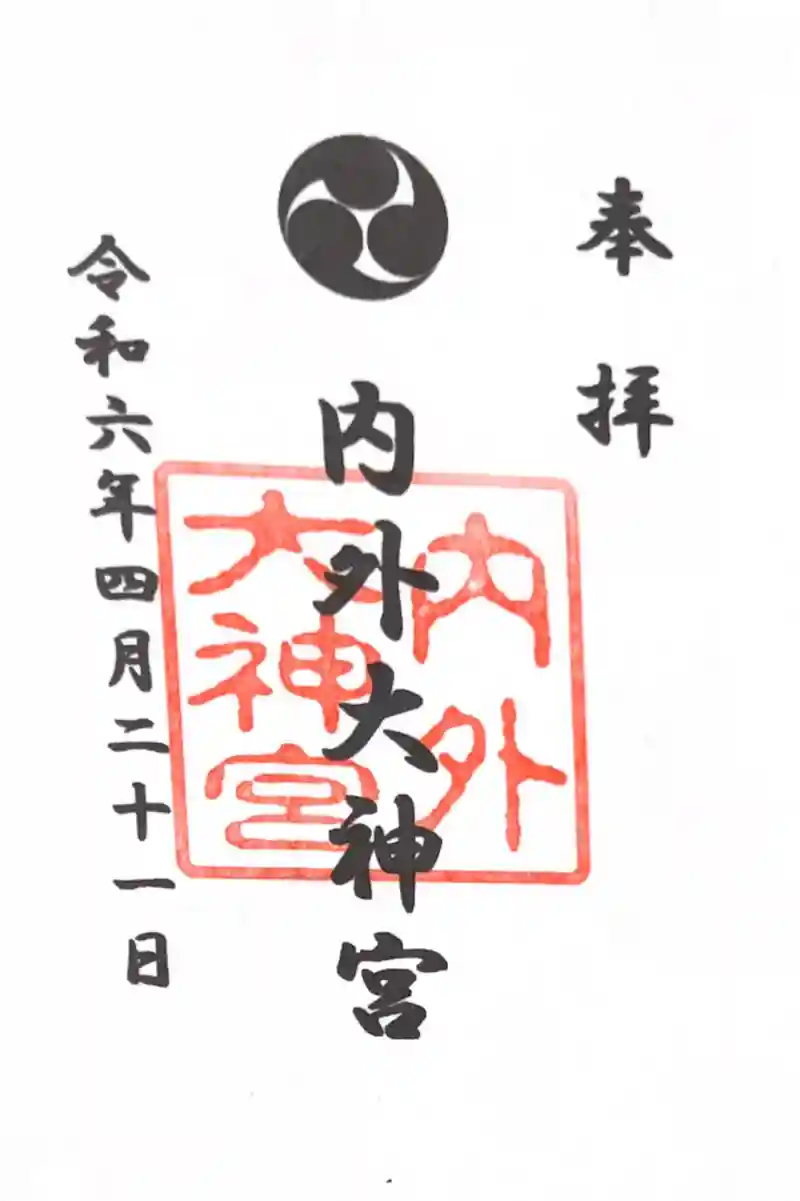 奉拝
内外大神宮
内外
大神宮
令和六年四月二十一日